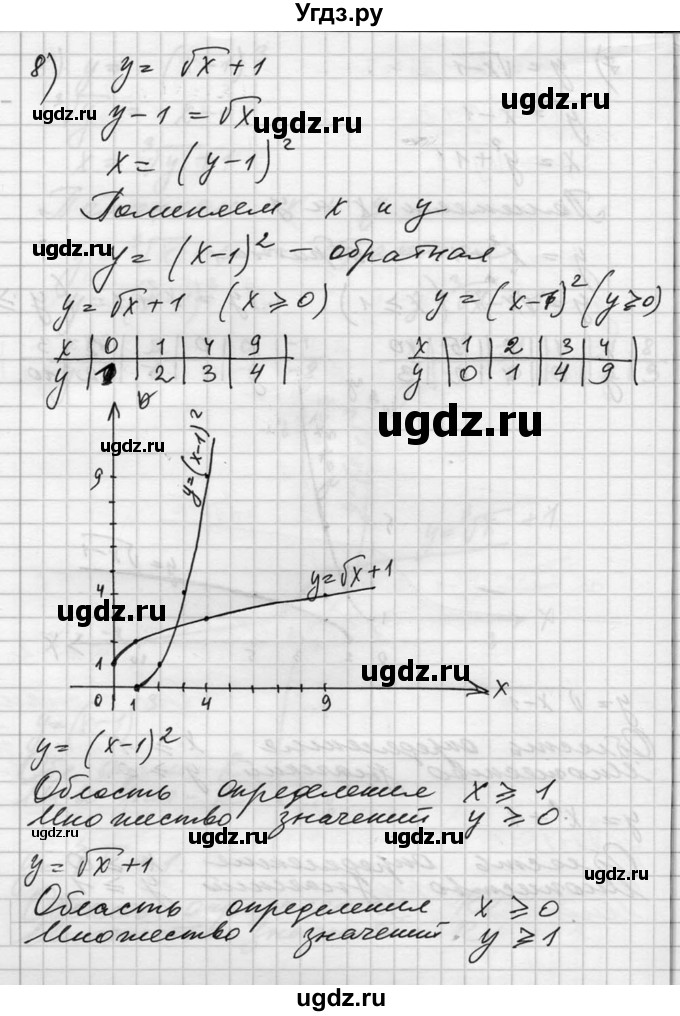 Угдз.ру
8) y = √x + 1
ugdz.ru y - 1 = √x ugdz.ru ugdz.ru
x = (y-1)²
Поменяем x и y
ugdz.ru y = (x-1)² - обратная
y = √x + 1 (x ⩾ 0) y = (x-1)² (y ⩾ 0)
x | 0 | 1 | 4 | 9 | x | 1 | 2 | 3 | 4
y | 1 | 2 | 3 | 4 | y | 0 | 1 | 4 | 9
ugdz.ru
y=(x-1)²
ugdz.ru
9
y=√x+1
4
ugdz.ru
1
ugdz.ru
x
0 1 4 9
y = (x-1)²
Область определения x ⩾ 1
Множество значений y ⩾ 0.
ugdz.ru ugdz.ru ugdz.ru
y = √x + 1
ugdz.ru
Область определения x ⩾ 0.
Множество значений. y ⩾ 1
ugdz.ru